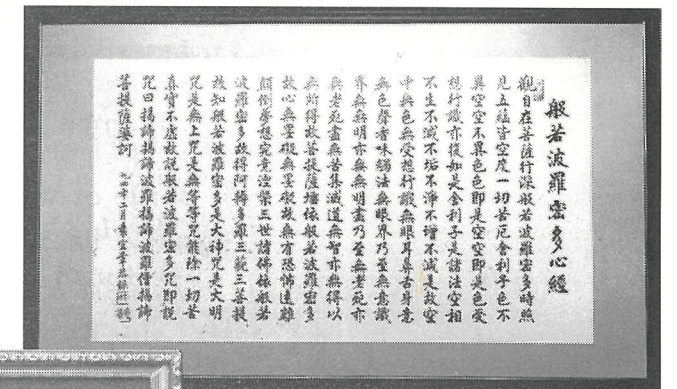 般若波羅密多心經
觀自在菩薩行深般若波羅密多時照
見五蘊皆空度一切苦厄舍利子色不
異空空不異色色即是空空即是色受
想行識亦復如是舍利子是諸法空相
不生不滅不垢不淨不增不減是故空
中無色無受想行識無眼耳鼻舌身意
無色聲香味觸法無眼界乃至無意識
界無無明亦無無明盡乃至無老死亦
無老死盡無苦集滅道無智亦無得以
無所得故菩提薩埵依般若波羅密多
故心無罣礙無罣礙故無有恐怖遠離
顛倒夢想究竟涅槃三世諸佛依般若
波羅密多故得阿耨多羅三藐三菩提
故知般若波羅密多是大神咒是大明
咒是無上咒是無等等咒能除一切苦
真實不虛故說般若波羅密多咒即說
咒曰揭諦揭諦波羅揭諦波羅僧揭諦
菩提薩婆訶